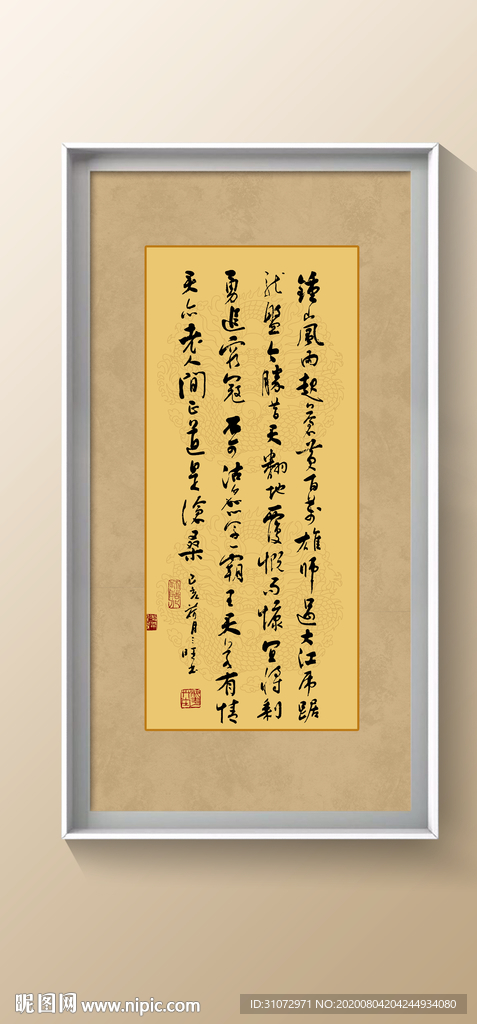 鐘山風雨起蒼黃百萬雄师過大江虎踞
龙盤今勝昔天翻地覆慨而慷宜将剩
勇追窮寇不可沽名学霸王天若有情
天亦老人間正道是滄桑
己亥荷月
昵图网 www.nipic.com
ID:31072971 NO:20200804204244934080